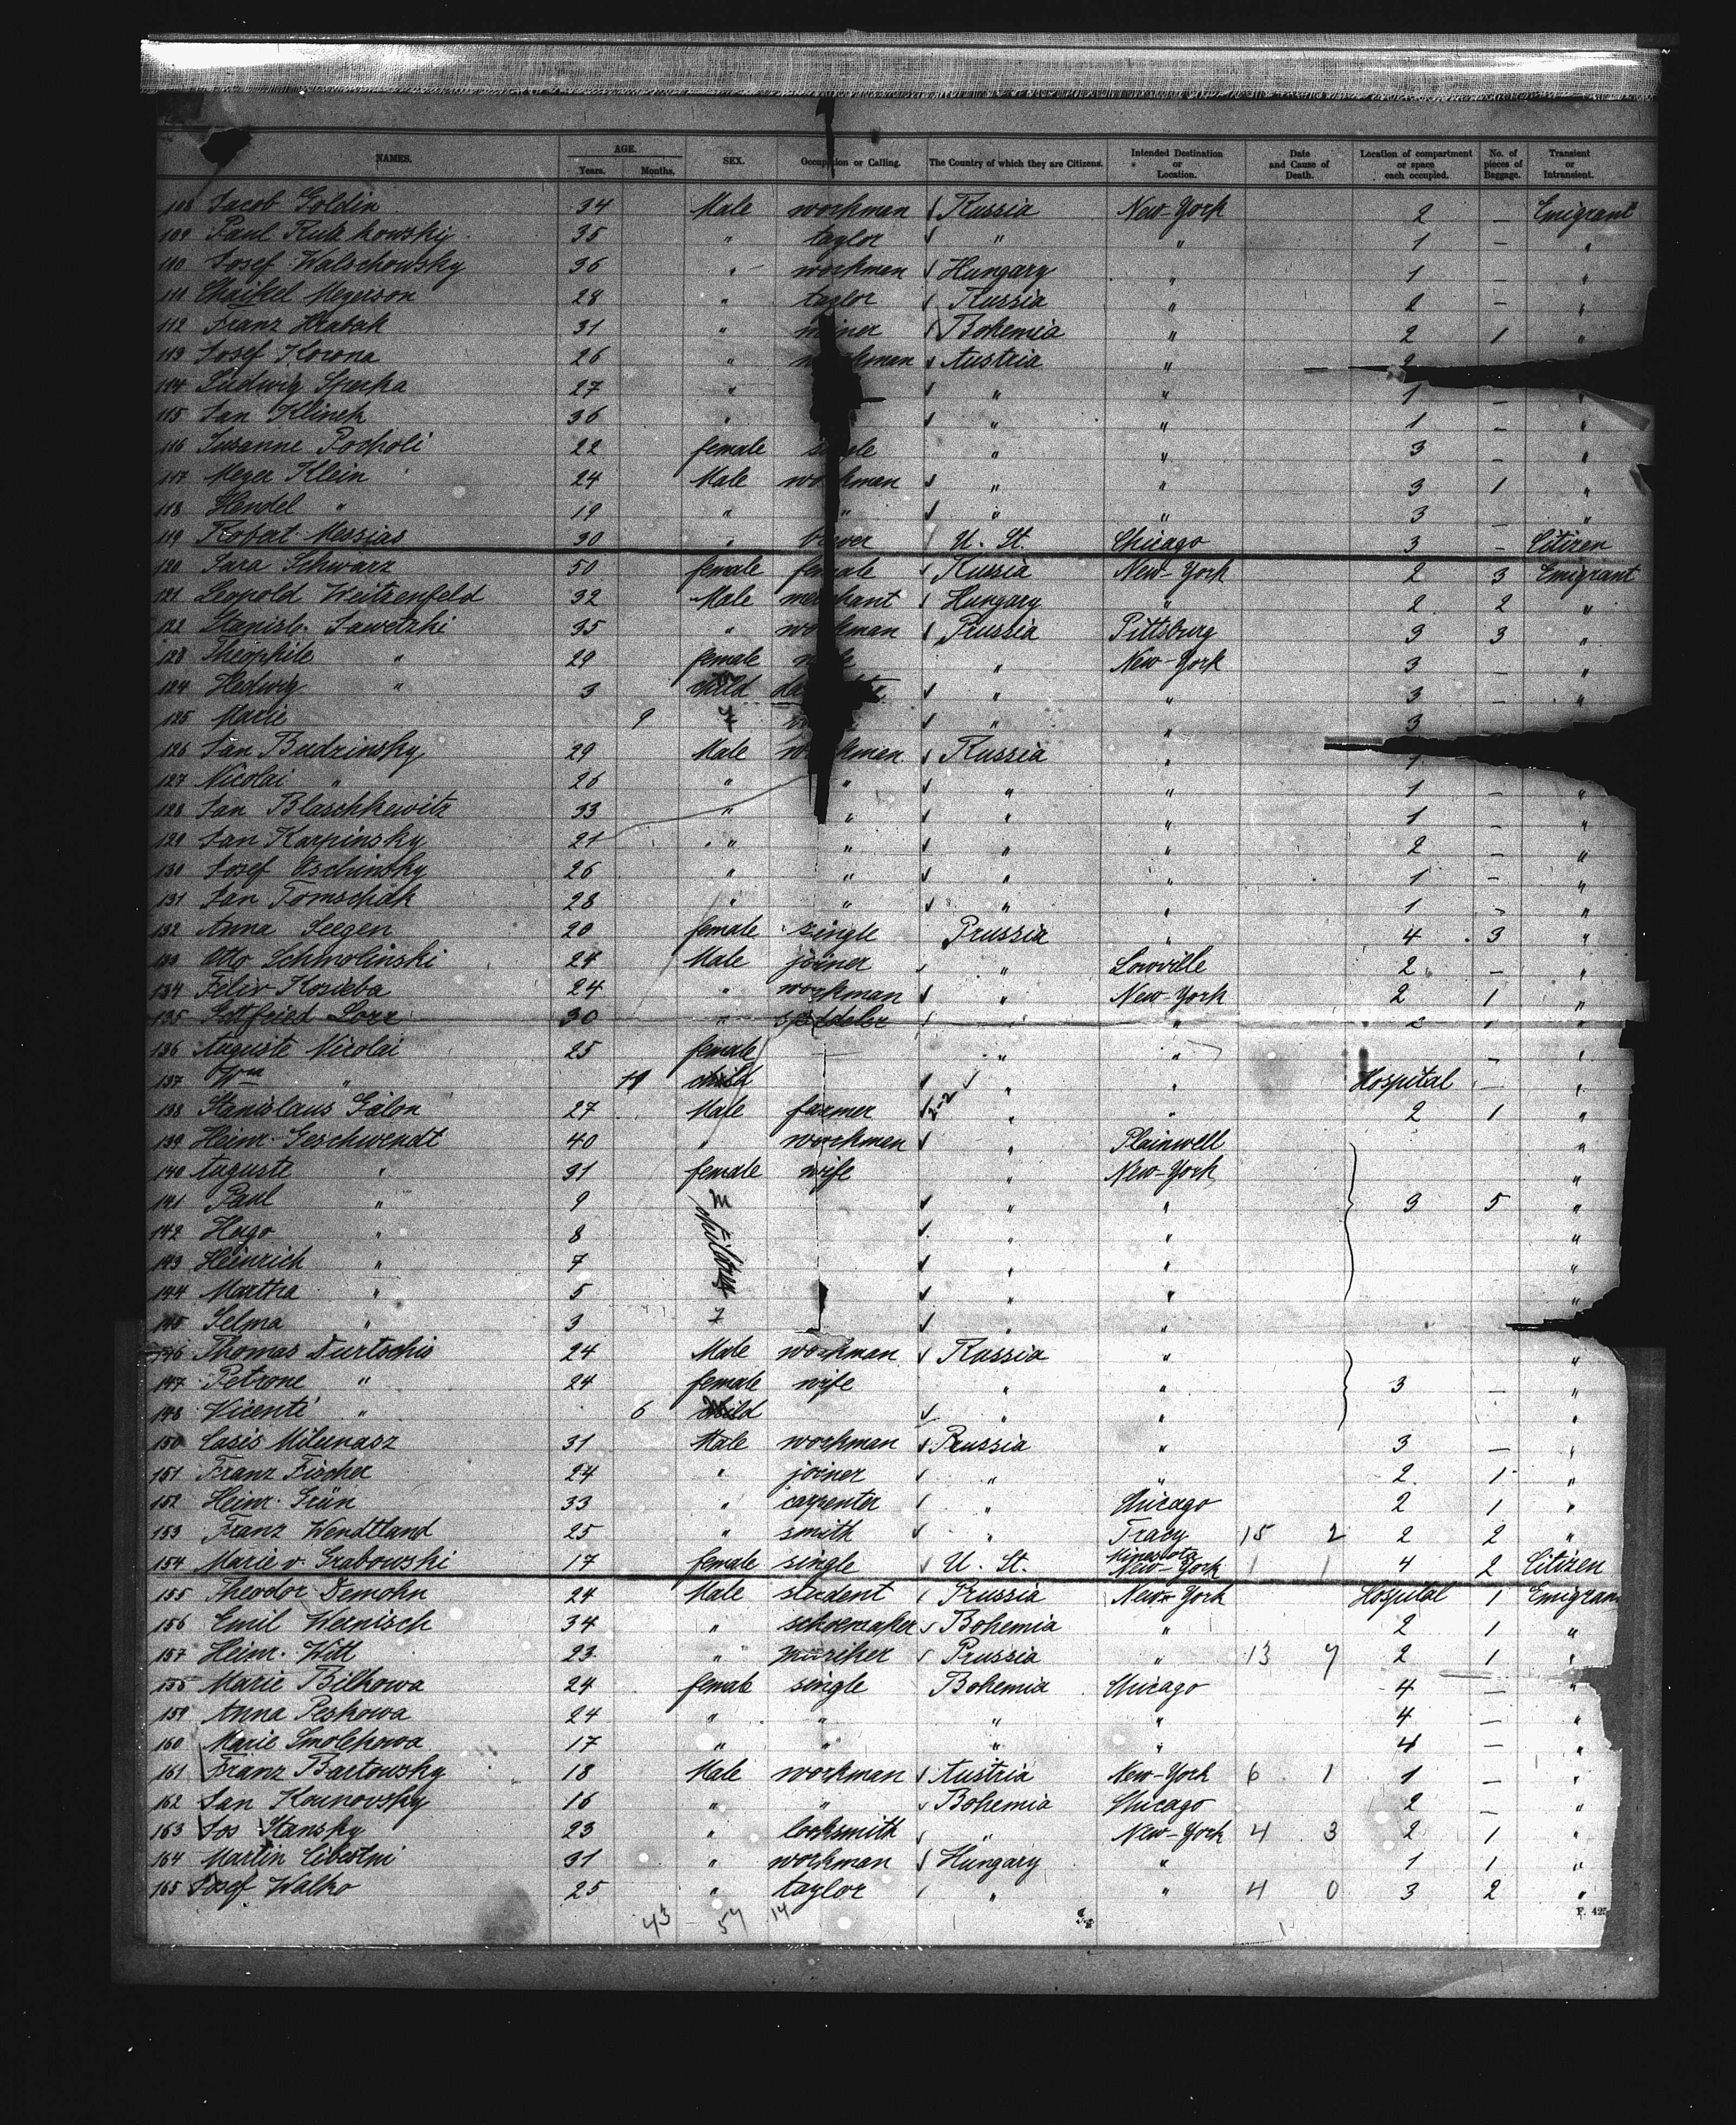 NAMES. AGE. Years. Months. SEX. Occupation or Calling. The Country of which they are Citizens. Intended Destination or Location. Date and Cause of Death. Location of compartment or space each occupied. No. of pieces of Baggage. Transient or Intransient.
108 Jacob Goldin 34 Male workman Russia New-York 2 – Emigrant
109 Paul 35 " taylor " " 1 – "
110 Josef Walschowsky 36 " workman Hungary " 1 – "
111 Chaikel Meyerson 28 " taylor Russia " 2 – "
112 Franz Hrabak 31 " miner Bohemia " 2 1 "
113 Josef Korona 26 " Austria " 2
114 Ludwig 27 " " " 1 – "
115 Jan Klinek 36 " " " 1 – "
116 Susanne Pocholi 22 female " " 3 – "
117 Meyer Klein 24 Male workman " " 3 1 "
118 Hendel " 19 " " " " 3 – "
119 Robert Messias 30 " U. St. Chicago 3 – Citizen
120 Sara Schwarz 50 female female Russia New-York 2 3 Emigrant
121 Leopold Weitzenfeld 32 Male merchant Hungary " 2 2 "
122 Stanisl. Sawetzki 35 " workman Prussia Pittsburg 3 3 "
123 Theophile " 29 female " New-York 3 – "
124 Hedwig " 3 child " " 3 – "
125 Marie 9 f " " 3
126 Jan Budzinsky 29 Male workman Russia " 1
127 Nicolai " 26 " " " " 1 – "
128 Jan Blaschkewitz 33 " " " " 1 – "
129 Jan Karpinsky 21 " " " " 2 – "
130 Josef 26 " " " " 1 – "
131 Jan Tomschak 28 " " " " 1 – "
132 Anna Seegen 20 female single Prussia " 4 3 "
133 Otto Schmolinski 24 Male joiner " Lowville 2 – "
134 Felix Kosieba 24 " workman " New-York 2 1 "
135 Gottfried Lorr 30 " " " 2 1 "
136 Auguste Nicolai 25 female – " " – "
137 Wm " 11 child " " Hospital – "
138 Stanislaus Galon 27 Male farmer " " 2 1 "
139 Heinr. Geschwendt 40 " workman " Plainwell "
140 Auguste " 31 female wife " New-York "
141 Paul " 9 m " " 3 5 "
142 Hugo " 8 children " " "
143 Heinrich " 7 " " "
144 Martha " 5 " " "
145 Selma " 3 f " "
146 Thomas Durtschis 24 Male workman Russia " "
147 Petrone " 24 female wife " " 3 – "
148 Vicenti " 6 child " " "
150 Casis Milunasz 31 Male workman Prussia " 3 – "
151 Franz Fischer 24 " joiner " " 2 1 "
152 Heinr. Grün 33 " carpenter " Chicago 2 1 "
153 Franz Wendtland 25 " smith " Tracy 15 2 2 2 "
Minesota
154 Marie v. Grabowski 17 female single U. St. New-York 1 1 4 2 Citizen
155 Theodor Demohn 24 Male student Prussia New-York Hospital 1 Emigran
156 Emil Wernisch 34 " schoemaker Bohemia " 2 1 "
157 Heinr. Witt 23 " Prussia " 13 7 2 1 "
158 Marie Bilkowa 24 female single Bohemia Chicago 4 – "
159 Anna Peskowa 24 " " " " 4 – "
160 Marie Smolekowa 17 " " " " 4 – "
161 Franz Bartowsky 18 Male workman Austria New-York 6 1 1 – "
162 Jan Kounovsky 16 " " Bohemia Chicago 2 – "
163 Jos Stansky 23 " locksmith " New-York 4 3 2 1 "
164 Martin 31 " workman Hungary " 1 1 "
165 Josef Walko 25 " taylor " " 4 0 3 2 "
43 57 14
F. 425